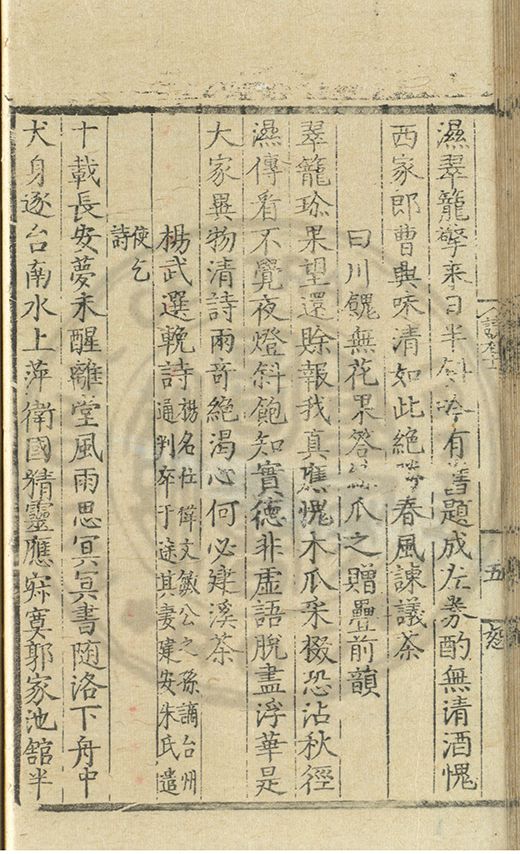 濕翠籠擎来日半斜吟有舊題成左券酌無清酒愧
西家郎曹興味清如此絶勝春風諫議茶
曰川餽無花果答瓜之贈疊前韻
翠籠珎果望還賒報我真應愧木瓜采掇恐沾秋徑
濕傳看不覺夜燈斜飽知實德非虚語脫盡浮華是
大家異物清詩兩竒絶渴心何必建溪茶
楊武選輓詩楊名仕偉文敏公之孫謫台州
通判卒于途其妻建安朱氏遣
使乞
詩
十載長安夢未醒離堂風雨思冥冥書随洛下舟中
犬身逐台南水上萍衛國精靈應寂寞郭家池舘半
五